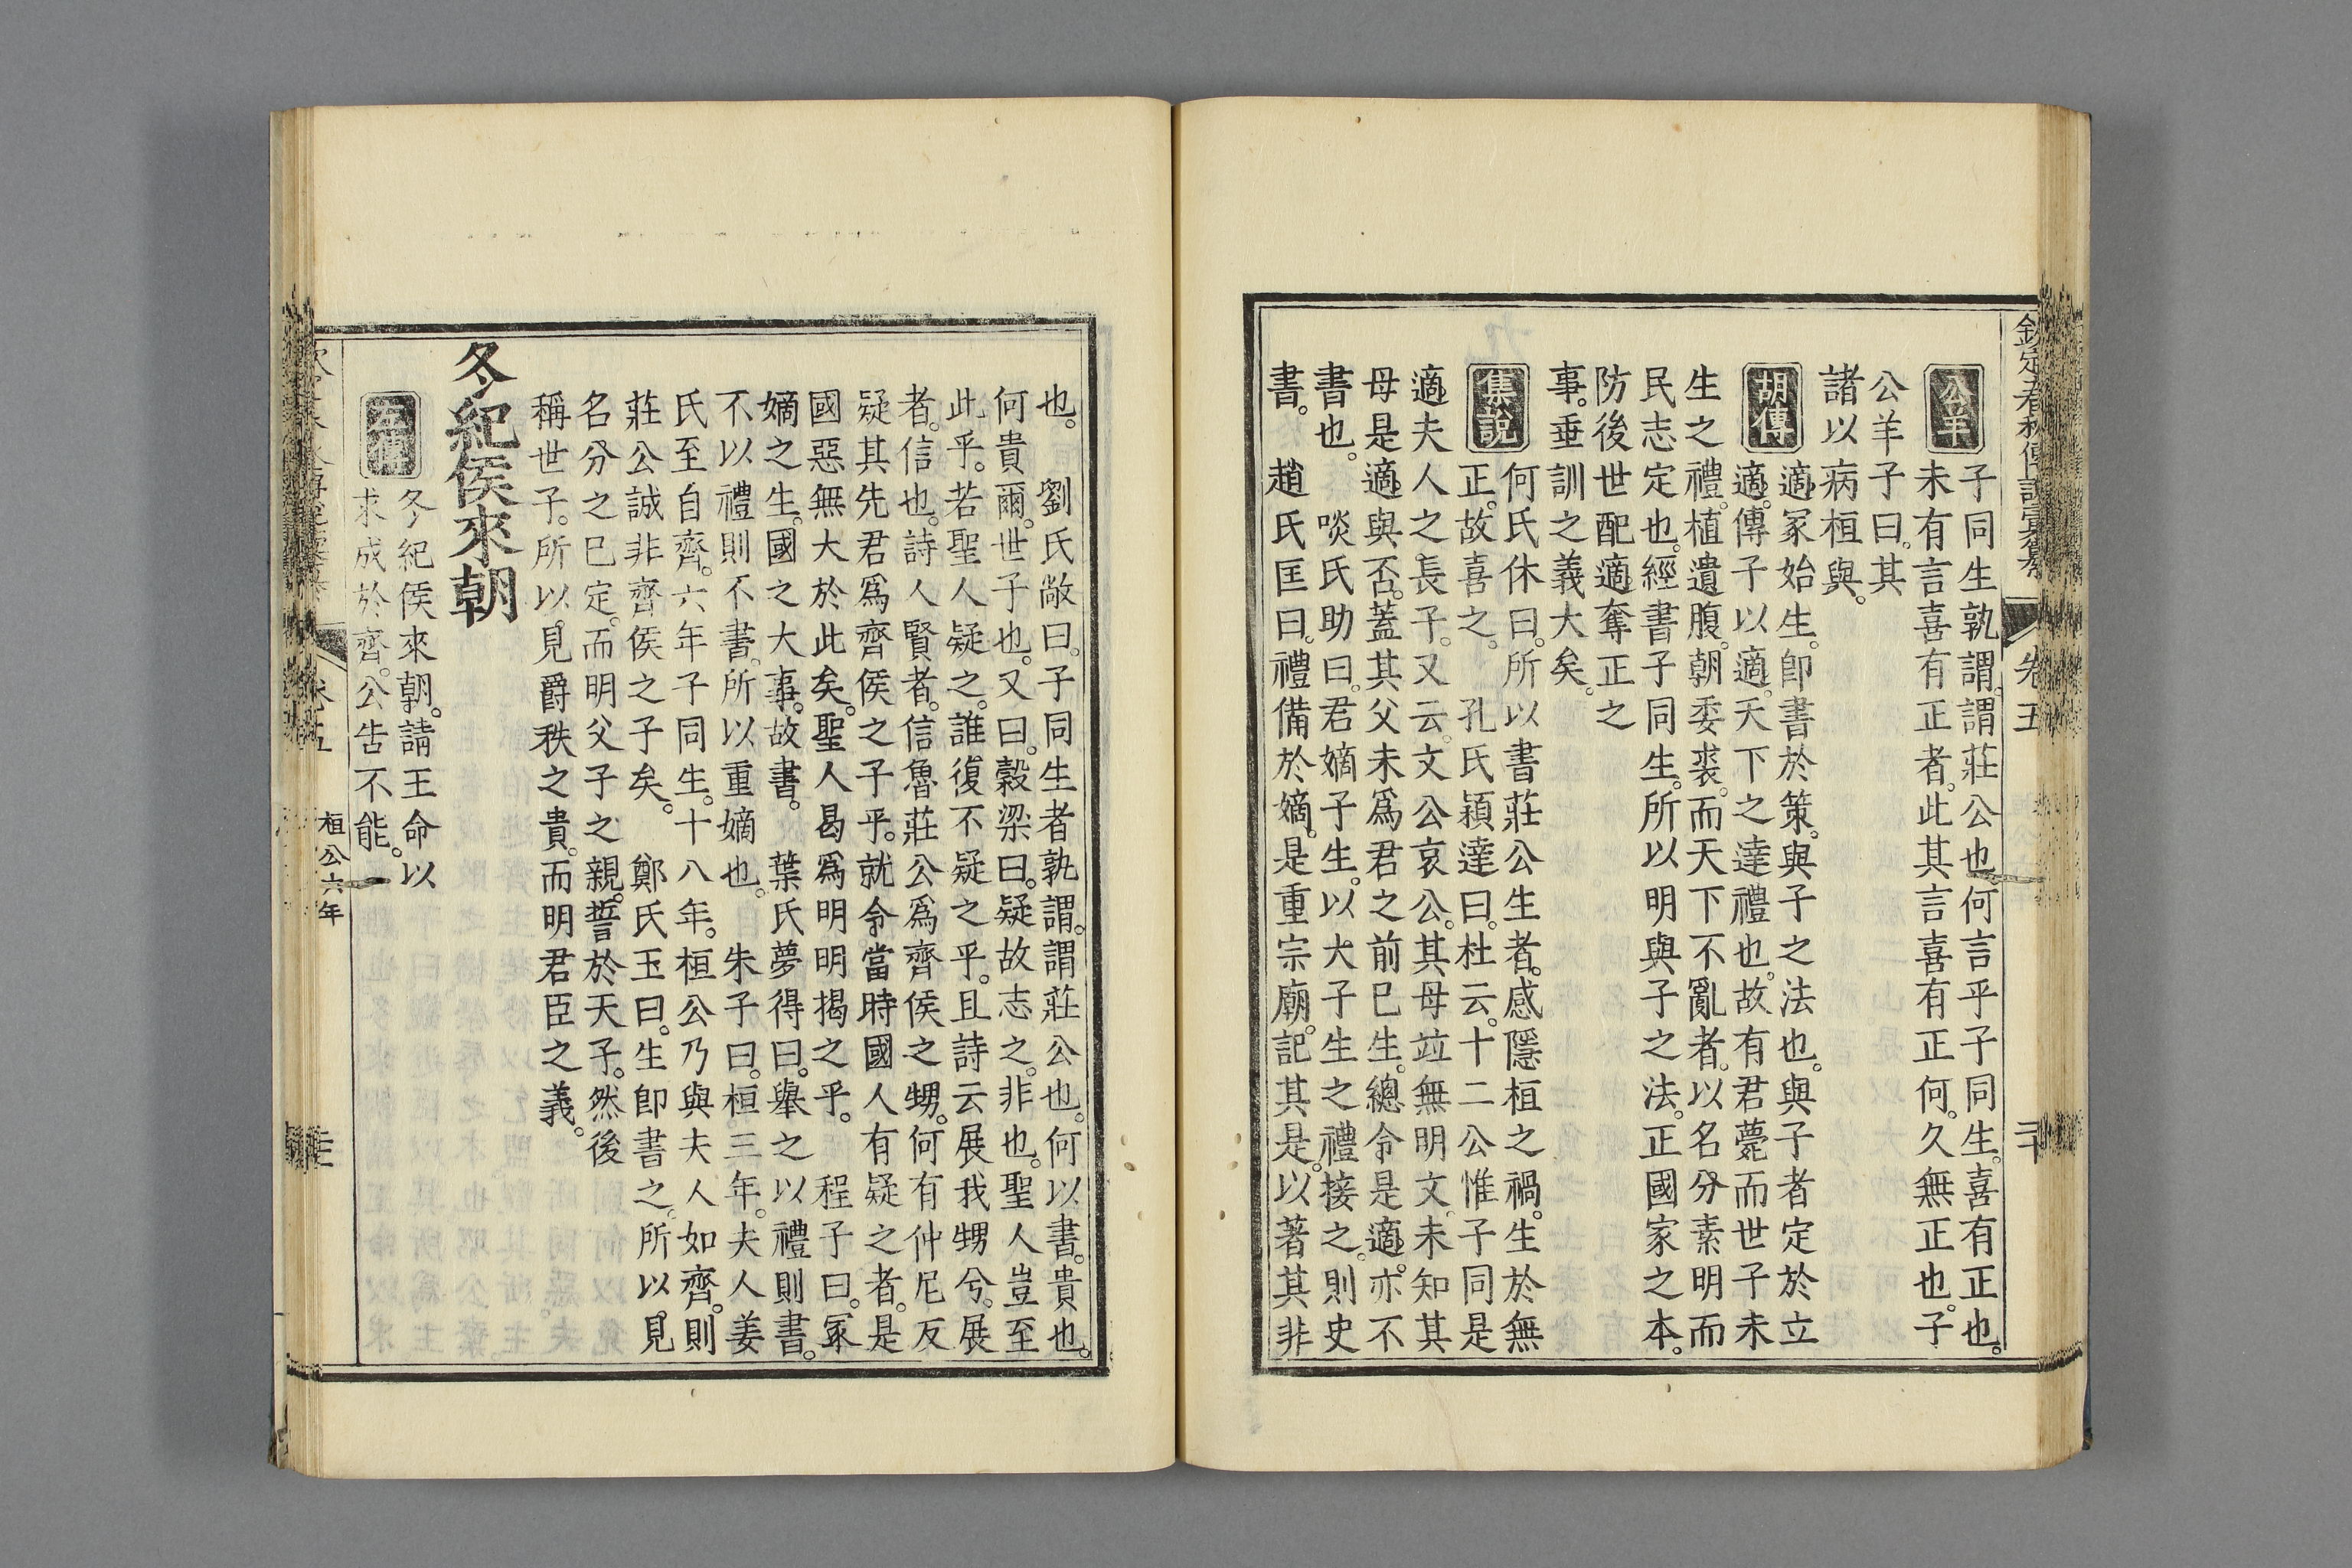 欽定春秋傳說彙纂 卷五 二十
公羊
子同生孰謂。謂莊公也何言乎子同生。喜有正也。
未有言喜有正者。此其言喜有正何。久無正也。子
公羊子曰。其
諸以病桓與。
胡傳
適冢始生。卽書於策。與子之法也。與子者定於立
適。傳子以適。天下之達禮也。故有君薨而世子未
生之禮。植遺腹。朝委裘。而天下不亂者。以名分素明而
民志定也。經書子同生。所以明與子之法。正國家之本。
防後世配適奪正之
事。垂訓之義大矣。
集說
何氏休曰。所以書莊公生者。感隱桓之禍。生於無
正。故喜之。 孔氏穎達曰。杜云。十二公惟子同是
適夫人之長子。又云。文公哀公。其母竝無明文。未知其
母是適與否。蓋其父未爲君之前已生。總令是適。亦不
書也。 啖氏助曰。君嫡子生。以大子生之禮接之。則史
書。 趙氏匡曰。禮備於嫡。是重宗廟。記其是。以著其非
也。 劉氏敞曰。子同生者孰謂。謂莊公也。何以書。貴也。
何貴爾。世子也。又曰。榖梁曰。疑故志之。非也。聖人豈至
此乎。若聖人疑之。誰復不疑之乎。且詩云展我甥兮。展
者。信也。詩人賢者。信魯莊公爲齊侯之甥。何有仲尼反
疑其先君爲齊侯之子乎。就令當時國人有疑之者。是
國惡無大於此矣。聖人曷爲明明揭之乎。 程子曰。冢
嫡之生。國之大事。故書。 葉氏夢得曰。舉之以禮則書。
不以禮則不書。所以重嫡也。 朱子曰。桓三年。夫人姜
氏至自齊。六年子同生。十八年。桓公乃與夫人如齊。則
莊公誠非齊侯之子矣。 鄭氏玉曰。生卽書之。所以見
名分之已定。而明父子之親。誓於天子。然後
稱世子。所以見爵秩之貴。而明君臣之義。
冬紀侯來朝
左傳
冬紀侯來朝。請王命以
求成於齊。公告不能。
桓公六年